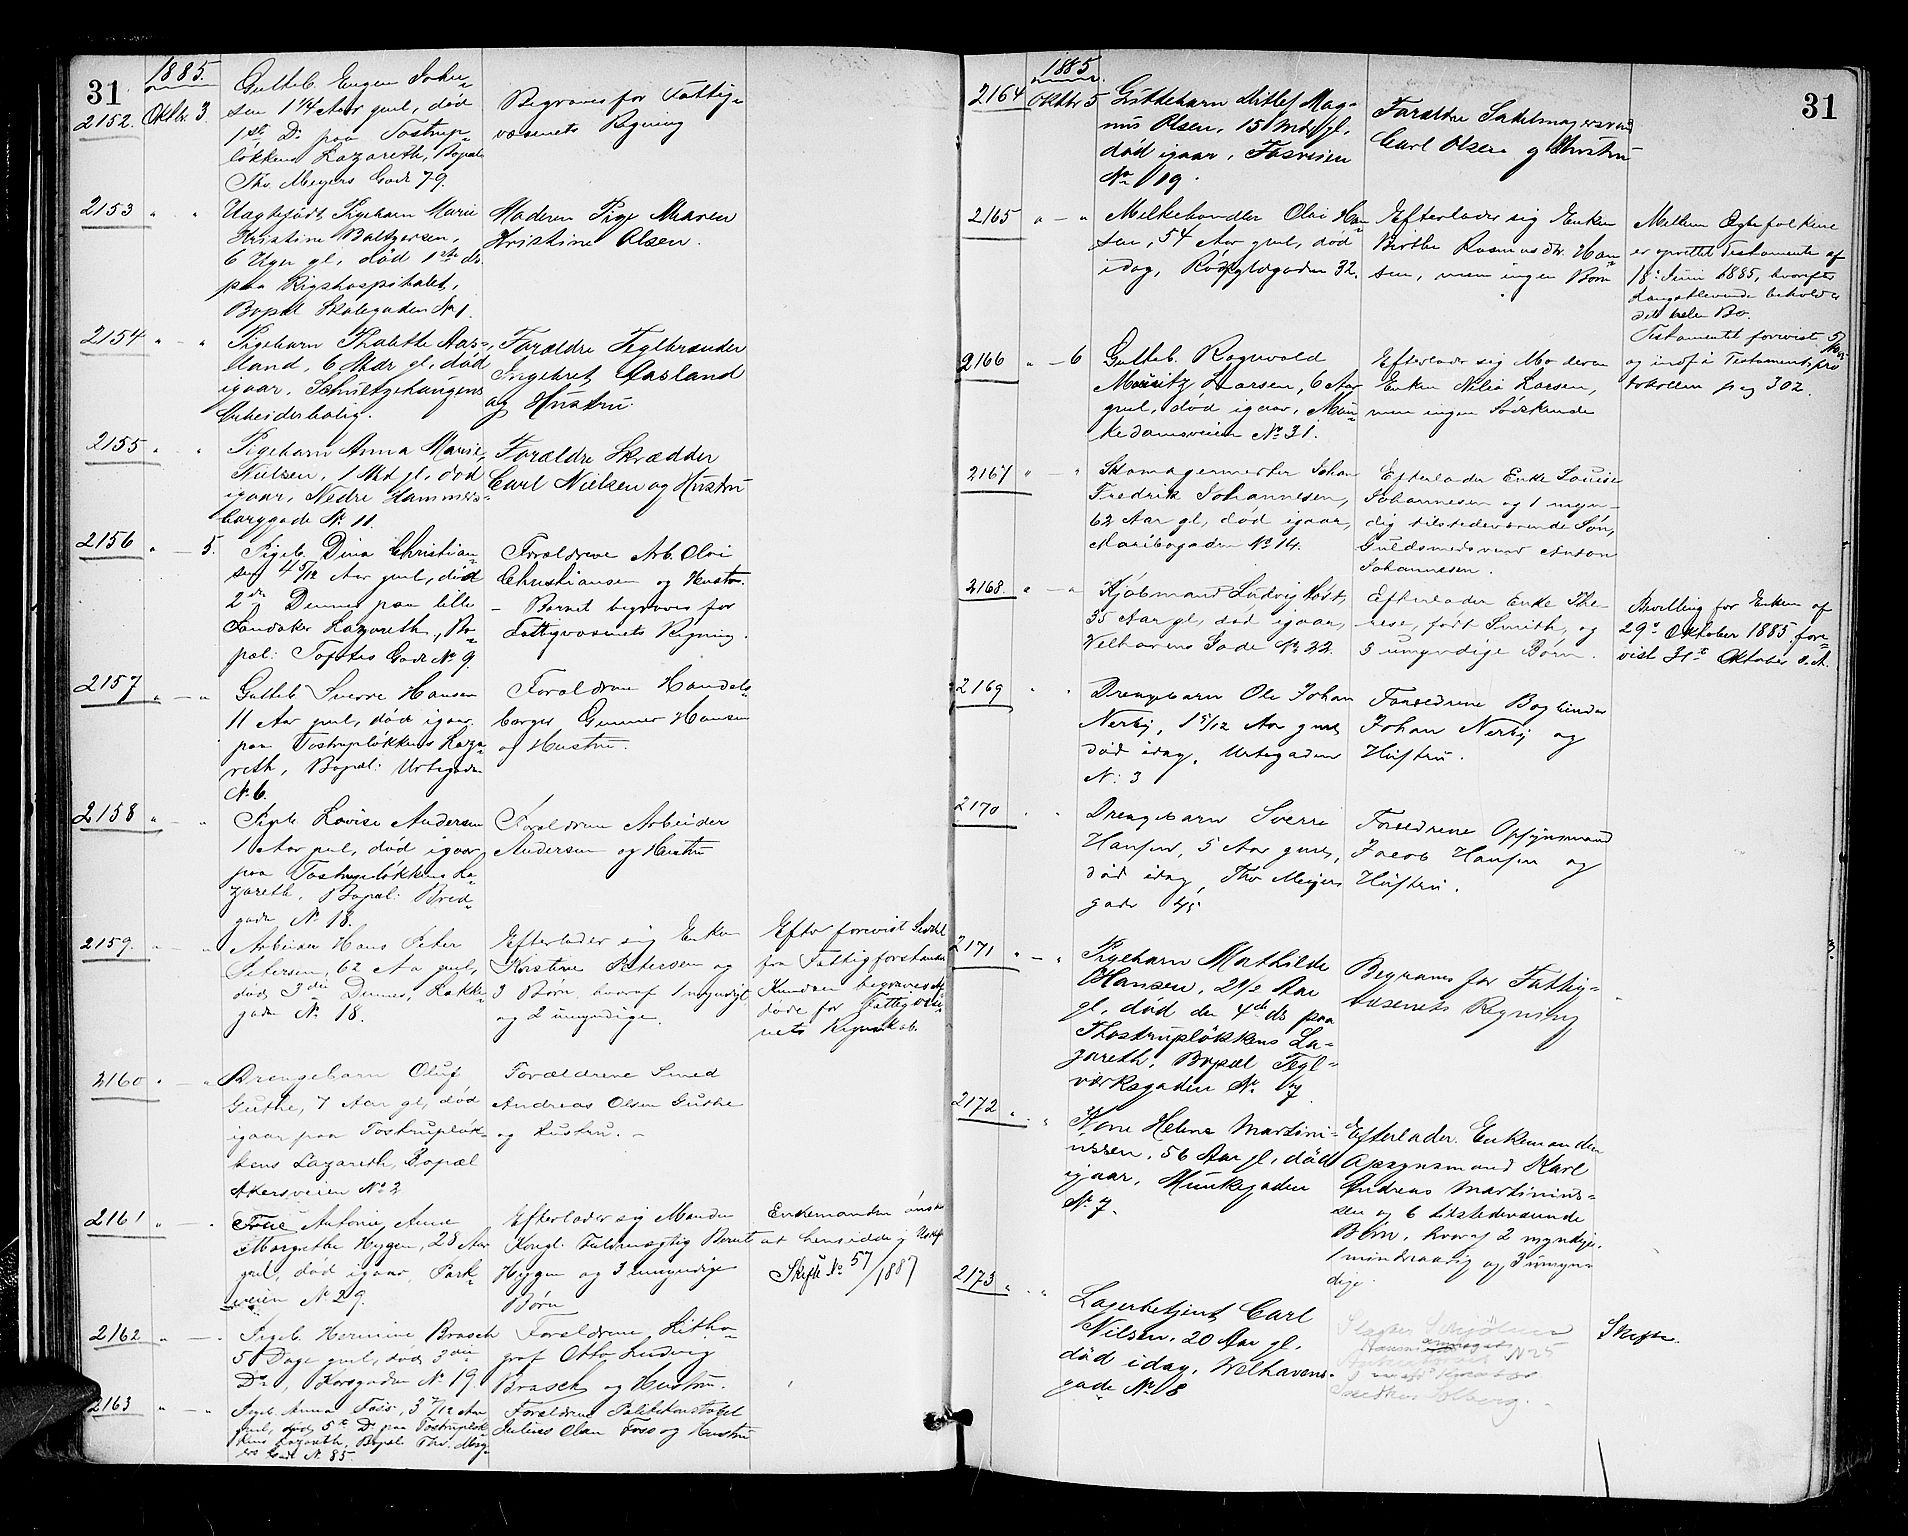 31
1885.
2152. Oktbr. 3.
Gutteb. Eugen John-
sen 1 1/4 Aar gml, død
1ste Ds paa Tostrup-
løkkens Lazareth, Bopæl
Thv. Meyers Gade 79.
Begraves for Fattig-
væsenets Regning
2153 " "
Uægtefødt Pigebarn Marie
Kristine Baltzersen,
6 Uger gl, død 1ste ds
paa Rigshospitalet,
Bopæl Skolegaden No 1.
Moderen Pige Maren
Kristine Olsen.
2154 " - "
Pigebarn Thalette Aas-
land, 6 Mdr gl, død
igaar, Schultzehaugens
Arbeiderbolig.
Forældre Teglbrænder
Ingebret Aasland
og Hustru.
2155 " "
Pigebarn Anna Marie
Nielsen, 1 Md gl, død
igaar, Nedre Hammers-
borggade No 11.
Forældre Skrædder
Carl Nielsen og Hustru
2156 " - 5.
Pigeb. Dina Christian-
sen 4 5/12 Aar gml, død
2den Dennes paa lille
Sandaker Lazareth, Bo-
pæl: Toftes Gade No 9.
Forældrene Arb. Olai
Christiansen og Hustru.
- Barnet begraves for
Fattigvæsenets Regning.
2157 " - "
Gutteb Sverre Hansen
11 Aar gml, død igaar
paa Tostrupløkkens Laza-
reth, Bopæl: Urtegaden
No. 6.
Forældrene Handels-
borger Gunner Hansen
og Hustru.
2158 " - "
Pigeb. Lovise Andersen
1 Aar gml, død igaar
paa Tostrupløkkens La-
zareth, Bopæl: Bred-
gade No 18.
Forældrene Arbeider
Andersen og Hustru
2159. " - "
Arbeider Hans Peter
Petersen, 62 Aar gml,
død 3die Dennes, Lakke-
gade No 18.
Efterlader sig Enken
Kristine Petersen og
3 Børn, hvoraf 1 myndigt
og 2 umyndige.
Efter forevist Seddel
fra Fattigforstander
Knudsen begraves
døde for Fattigvæse-
nets Regnskab.
2160 " - "
Drengebarn Oluf
Guthe, 7 Aar gl, død
igaar paa Tostrupløk-
kens Lazareth, Bopæl
Akersveien No 2
Forældrene Smed
Andreas Olsen Guthe
og Hustru. -
2161 " - "
Frue Antonie Anne
Margrethe Hygen, 28 Aar
gml, død igaar, Park-
veien No 29.
Efterlader sig Manden
Kongl. Fuldmægtig Bernt
Hygen og 3 umyndige
Børn
Enkemanden ønsker
at hensidde i Uskift
Skifte No 57/1887
2162 " - "
Pigeb. Hermine Brasch
5 Dage gml, død 3die
Ds, Korsgaden No 19.
Forældrene Litho-
graf Otto Ludvig
Brasch og Hustru.
2163 " - "
Pigeb. Anna Foss, 3 7/12 Aar
gml, død 5te Ds paa Tostrupløk-
kens Lazareth, Bopæl Thv. Mey-
ers Gade No 85.
Forældrene Politikonstabel
Julius Olan Foss og Hustru
31
1885.
2164 Oktbr 5
Guttebarn Ditlef Mag-
nus Olsen, 15 Mdr gl,
død igaar, Fosveien
No 19.
Forældre Sadelmagersvend
Carl Olsen og Hustru
2165 " - "
Melkehandler Olai Han-
sen, 54 Aar gml, død
idag, Rødfyldgaden 32.
Efterlader sig Enken
Birthe Rasmusdtr. Han-
sen, men ingen Børn
Mellem Ægtefolkene
er oprettet Testamente af
18. Juni 1885, hvorefter
Længstlevende beholder
det hele Bo.
Testamentet forevist 5/
og indf. i Testamentspro
tokollen pag 302.
2166 " - 6
Gutteb. Ragnvald
Mauritz Larsen, 6 Aar
gml, død igaar, Mun-
kedamsveien No 31.
Efterlader sig Moderen
Enken Nilia Larsen,
men ingen Sødskende
2167 " - "
Skomagermester Johan
Fredrik Johannesen,
62 Aar gl, død igaar,
Maribogaden No 14.
Efterlader Enke Louise
Johannesen og 1 myn-
dig tilstedeværende Søn,
Guldsmedsvend Anton
Johannesen.
2168. " - "
Kjøbmand Ludvig Høst,
35 Aar gl, død igaar,
Welhavens Gade No 22.
Efterlader Enke The-
rese, født Smith, og
5 umyndige Børn.
Bevilling for Enken af
29de Oktober 1885 fore-
vist 31te Oktober s. A.
2169 " "
Drengebarn Ole Johan
Nerby, 1 5/12 Aar gml,
død idag, Urtegaden
No: 3
Forældrene Bogbinder
Johan Nerby og
Hustru.
2170 " "
Drengebarn Sverre
Hansen, 5 Aar gml,
død idag, Thv Meyers
gade 45
Forældrene Opsynsmand
Jacob Hansen og
Hustru.
2171 " - "
Pigebarn Mathilde
Hansen, 2 1/2 Aar
gl, død den 4de ds paa
Thostrupløkkens La-
zareth, Bopæl Tegl-
værksgaden No 7
Begraves for Fattig-
væsenets Regning
2172 " "
Kone Helene Martini-
ussen, 56 Aar gl, død
igaar, Munkegaden
No 7.
Efterlader Enkemanden
Opsynsmand Karl
Andreas Martinius-
sen og 6 tilstedeværende
Børn, hvoraf 2 myndige,
1 mindreaarig og 3 umyn-
dige.
2173 " "
Lagerbetjent Carl
Nilsen, 20 Aar gl,
død idag, Welhavens-
gade No 8
No 25
Solberg.
Skifte.